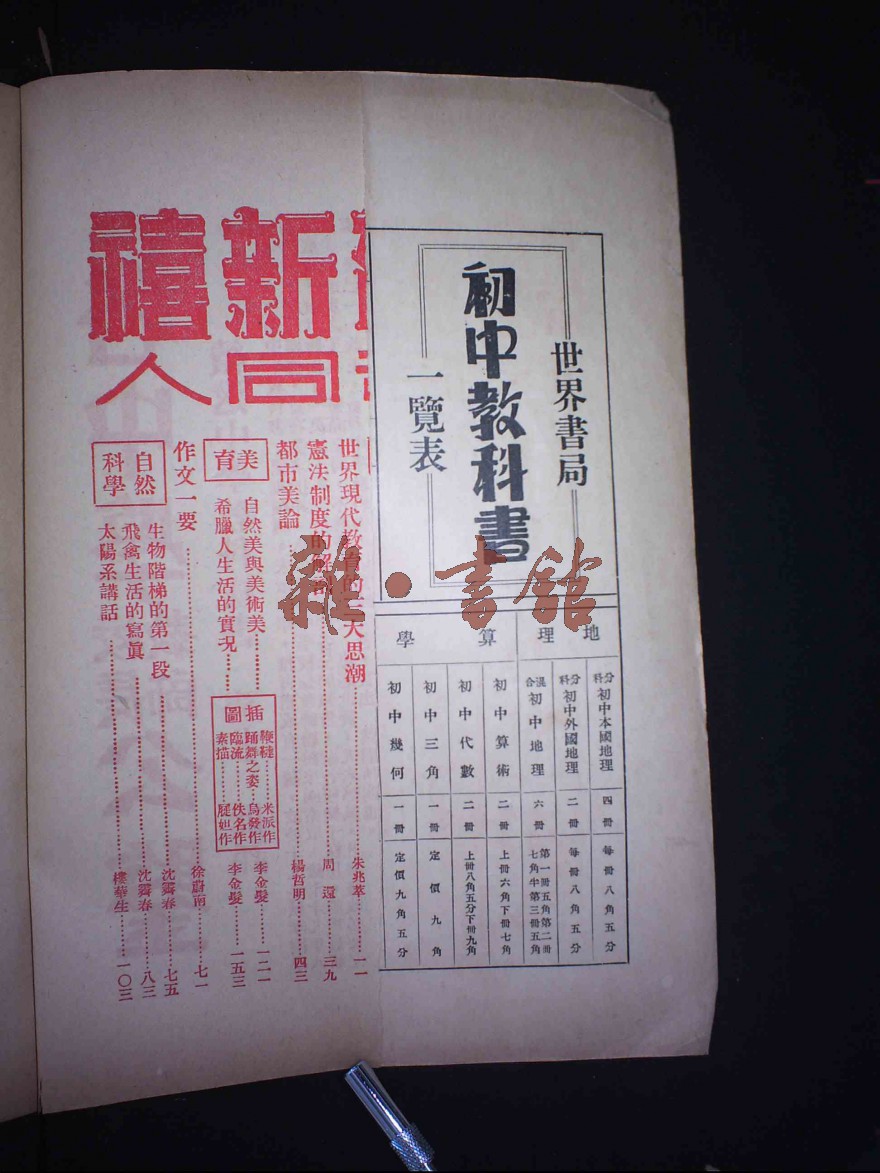 世界書局
初中教科書
一覽表
地理
算學
分科初中本國地理 四冊 每冊八角五分
分科初中外國地理 二冊 每冊八角五分
混合初中地理 六冊 第一冊五角第二冊七角半第三冊五角
初中算術 二冊 上冊六角下冊七角
初中代數 二冊 上冊八角五分下冊九角
初中三角 一冊 定價九角
初中幾何 一冊 定價九角五分
新禧
同人
世界現代教育的三大思潮……朱兆萃……一一
憲法制度的解說……周還……三九
都市美論……楊哲明……四三
美育
自然美與美術美……李金髮……一二一
希臘人生活的實況……李金髮……一五三
插圖
鞭韃……米派作
踊舞之姿……烏發作
臨流……佚名作
素描……屁妲作
作文一要……徐蔚南……七一
自然科學
生物階梯的第一段……沈霽春……七五
飛禽生活的寫眞……沈霽春……八三
太陽系講話……樓華生……一〇三
雜·書館